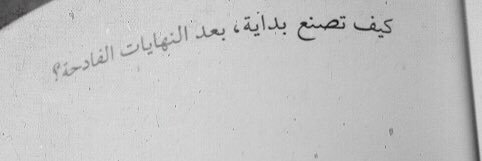 كيف تصنع بداية، بعد النهايات الفادحة؟